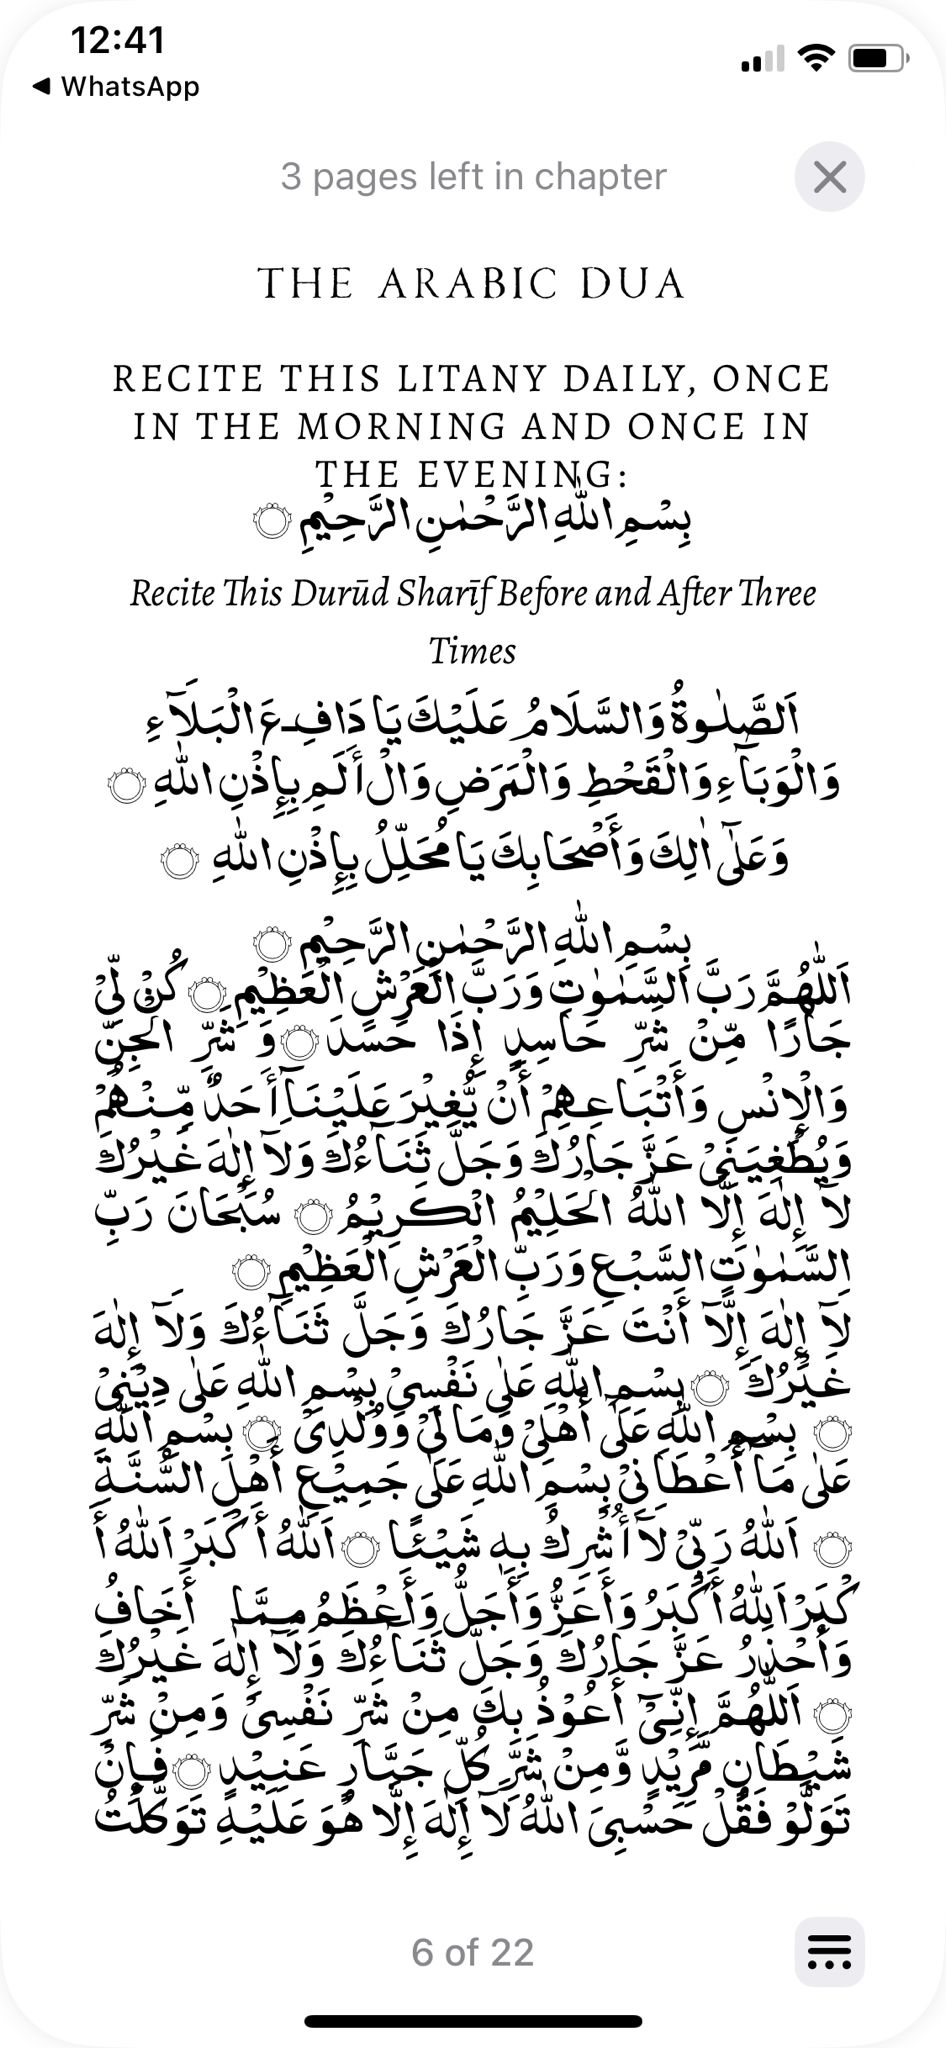 12:41
◀ WhatsApp
3 pages left in chapter
THE ARABIC DUA
RECITE THIS LITANY DAILY, ONCE
IN THE MORNING AND ONCE IN
THE EVENING:
بِسْمِ اللهِ الرَّحْمٰنِ الرَّحِيْمِ ۝
Recite This Durūd Sharīf Before and After Three
Times
اَلصَّلٰوةُ وَالسَّلَامُ عَلَيْكَ يَا دَافِعَ الْبَلَآءِ
وَالْوَبَآءِ وَالْقَحْطِ وَالْمَرَضِ وَالْأَلَمِ بِإِذْنِ اللهِ ۝
وَعَلٰٓى اٰلِكَ وَأَصْحَابِكَ يَا مُحَلِّلُ بِإِذْنِ اللهِ ۝
بِسْمِ اللهِ الرَّحْمٰنِ الرَّحِيْمِ ۝
اَللّٰهُمَّ رَبَّ السَّمٰوٰتِ وَرَبَّ الْعَرْشِ الْعَظِيْمِ ۝ كُنْ لِّيْ
جَارًا مِّنْ شَرِّ حَاسِدٍ إِذَا حَسَدَ ۝ وَ شَرِّ الْجِنِّ
وَالْإِنْسِ وَأَتْبَاعِهِمْ أَنْ يُّغِيْرَ عَلَيْنَآ أَحَدٌ مِّنْهُمْ
وَيُطْغِيَنِيْ عَزَّ جَارُكَ وَجَلَّ ثَنَآءُكَ وَلَآ إِلٰهَ غَيْرُكَ
لَآ إِلٰهَ إِلَّا اللهُ الْحَلِيْمُ الْكَرِيْمُ ۝ سُبْحَانَ رَبِّ
السَّمٰوٰتِ السَّبْعِ وَرَبِّ الْعَرْشِ الْعَظِيْمِ ۝
لَآ إِلٰهَ إِلَّآ أَنْتَ عَزَّ جَارُكَ وَجَلَّ ثَنَآءُكَ وَلَآ إِلٰهَ
غَيْرُكَ ۝ بِسْمِ اللهِ عَلٰى نَفْسِيْ بِسْمِ اللهِ عَلٰى دِيْنِيْ
۝ بِسْمِ اللهِ عَلٰٓى أَهْلِيْ وَمَالِيْ وَوُلْدِيْ ۝ بِسْمِ اللهِ
عَلٰى مَآ أَعْطَانِيْ بِسْمِ اللهِ عَلٰى جَمِيْعِ أَهْلِ السُّنَّةِ
۝ اَللهُ رَبِّيْ لَآ أُشْرِكُ بِهٖ شَيْئًا ۝ اَللهُ أَكْبَرُ اَللهُ أَ
كْبَرُ اَللهُ أَكْبَرُ وَأَعَزُّ وَأَجَلُّ وَأَعْظَمُ مِمَّا أَخَافُ
وَأَحْذَرُ عَزَّ جَارُكَ وَجَلَّ ثَنَآءُكَ وَلَآ إِلٰهَ غَيْرُكَ
۝ اَللّٰهُمَّ إِنِّيْٓ أَعُوْذُ بِكَ مِنْ شَرِّ نَفْسِيْ وَمِنْ شَرِّ
شَيْطَانٍ مَّرِيْدٍ وَّمِنْ شَرِّ كُلِّ جَبَّارٍ عَنِيْدٍ ۝ فَإِنْ
تَوَلَّوْ فَقُلْ حَسْبِيَ اللهُ لَآ إِلٰهَ إِلَّا هُوَ عَلَيْهِ تَوَكَّلْتُ
6 of 22